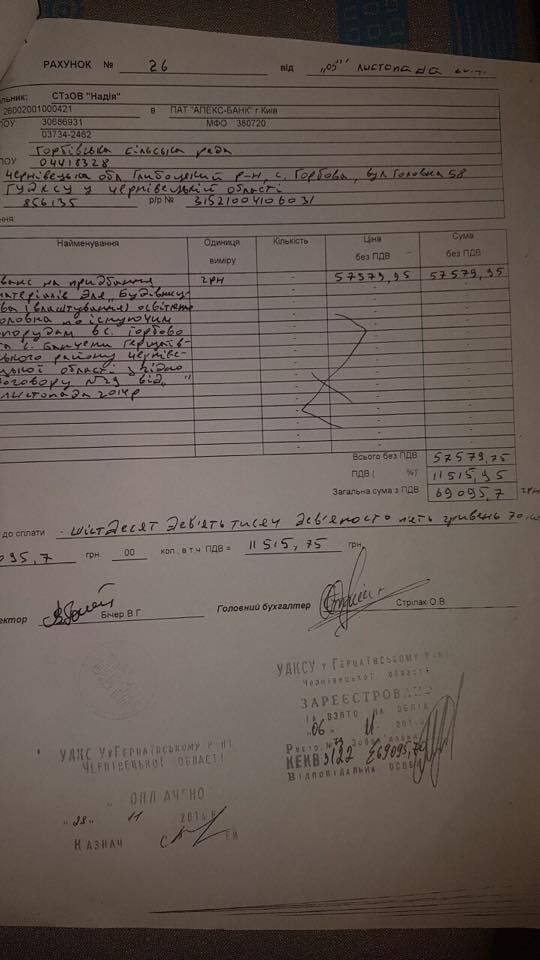 РАХУНОК № 26 від "05" листопада
льник: СТзОВ "Надія"
26002001000421 в ПАТ "АПЕКС-БАНК" г.Київ
ПОУ: 30686931 МФО 380720
03734-2462
Горбівська сільська рада
ПОУ 04418328
Чернівецька обл Глибоцький р-н, с. Горбова, вул Головна 58
ГУДКСУ у Чернівецькій області
856135 р/р № 31521004106031
ння:
Найменування Одиниця виміру Кількість Ціна без ПДВ Сума без ПДВ
ванс на придбання грн - 57579,95 57579,95
матеріалів для "Будівниц-
ва (влаштування) освітлен
оловна по існуючим
порудам в с. Горбово
та с. Банчени Герцаїв-
ського району Чернівец-
цької області згідно
договору №29 від " "
листопада 2014р
Всього без ПДВ 57579,75
ПДВ ( %) 11515,95
Загальна сума з ПДВ 69095,7 грн
до сплати шістдесят дев'ять тисяч дев'яносто п'ять гривень 70
095,7 грн. 00 коп., в т.ч. ПДВ = 11515,75 грн.
ектор Бічер В.Г. Головний бухгалтер Стрілак О.В.
УДКСУ у Герцаївському р-ні
Чернівецької області
ЗАРЕЄСТРОВАНО
ТА ВЗЯТО НА ОБЛІК
"06" 11 201
КЕКВ 3122 69095,70
ВІДПОВІДАЛЬНА ОСОБА
УДКС У Герцаївському р-ні
Чернівецької області
"ОПЛАЧЕНО"
"28" 11 2014
КАЗНАЧ ЕЙ